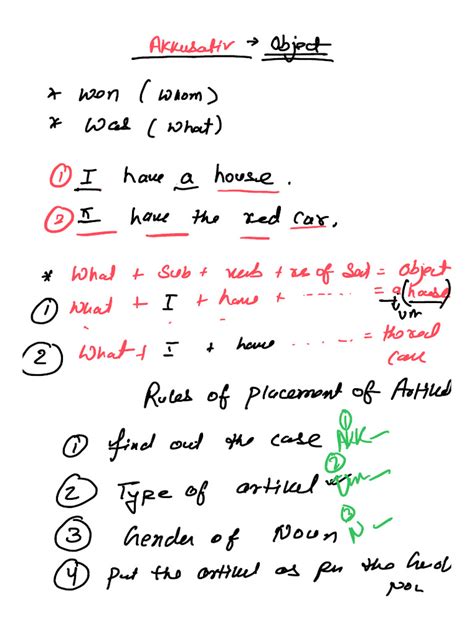 Akkusativ → Object
* Wen (whom)
* Was (what)
① I have a house.
② I have the red car.
* What + Sub + verb + re of Sat = Object
① What + I + have + ...... = a (house)
un
② What + I + have ...... = the red
Rules of Placement of Artikel
①
① find out the case AKK
②
② Type of artikel un
③
③ Gender of Noun N
④ Put the artikel as per the